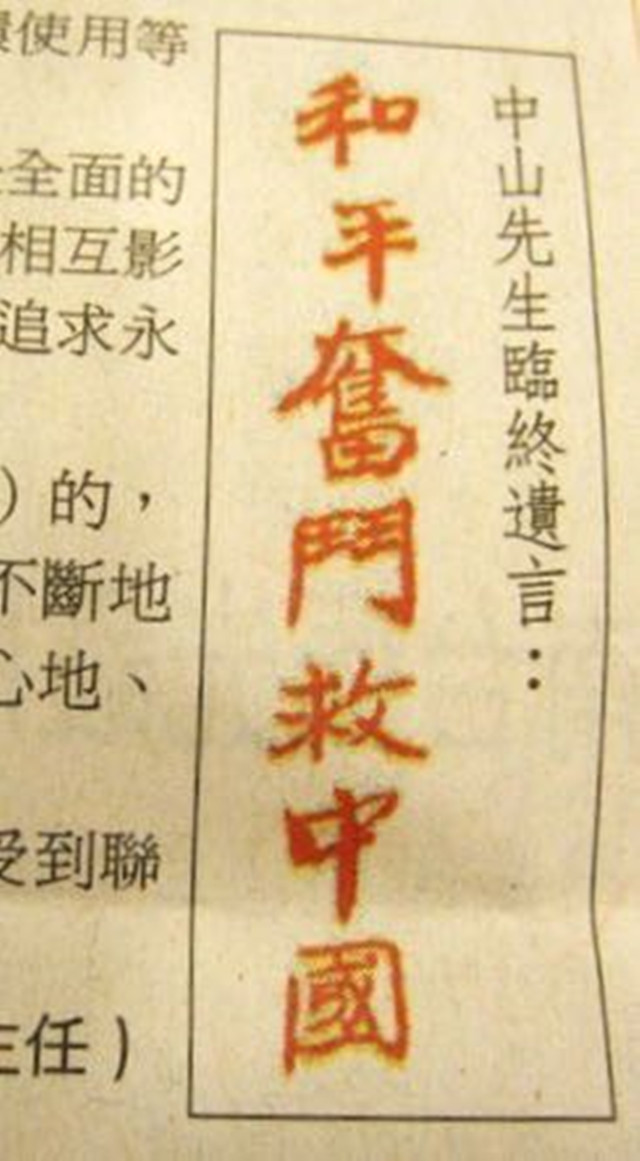 中山先生臨終遺言：
和平奮鬥救中國
使用等
全面的
相互影
追求永
）的，
不斷地
心地、
受到聯
主任）